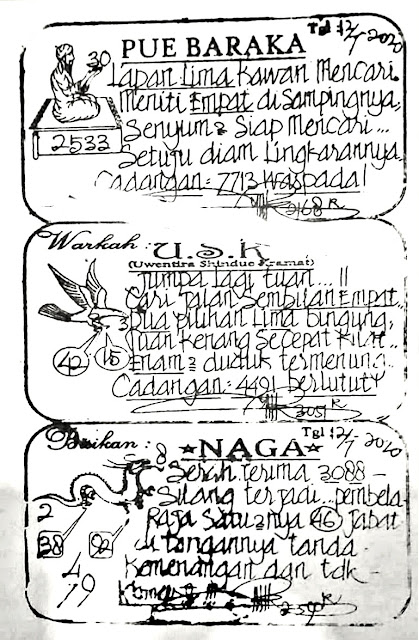 PUE BARAKA
Tgl :12/-7- 2020
30
2533
Lapan Lima Kawan Mencari.
Meniti Empat di Sampingnya,
Senyum2 Siap Mencari...
Setuju diam Lingkarannya
Cadangan: 7713 Waspada!
2168 R
Warkah : U.S.K
(Uwentira Skindue Kramat)
Jumpa lagi tuan... !!
Cari Jalan Sembilan Empat..
Dua pilihan Lima bingung,
Tuan Kenang Secepat Kilat...
Enam2 duduk termenung..
Cadangan: 4491 berlutut
42
15
3051 R
Bisikan : ★NAGA★
Tgl :12/-7- 2020
8
Serah terima 3088 -
Silang terjadi.. pembela
Raja Satu2nya 46 Jabat
di tangannya tanda
Kemenangan dan tdk
2
38
92
4
79
2500 R